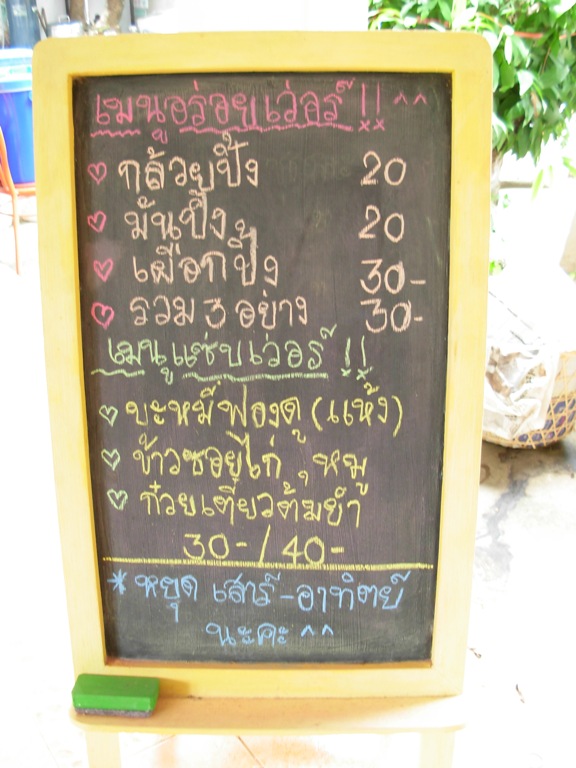 เมนูอร่อยเว่อร์ !! ^^
♡ กล้วยปิ้ง 20
♡ มันปิ้ง 20
♡ เผือกปิ้ง 30-
♡ รวม 3 อย่าง 30-
เมนูแซ่บเว่อร์ !!
♡ บะหมี่ฟองดู (แห้ง)
♡ ข้าวซอยไก่, หมู
♡ ก๋วยเตี๋ยวต้มยำ
30-/40-
* หยุด เสาร์-อาทิตย์
นะคะ ^^